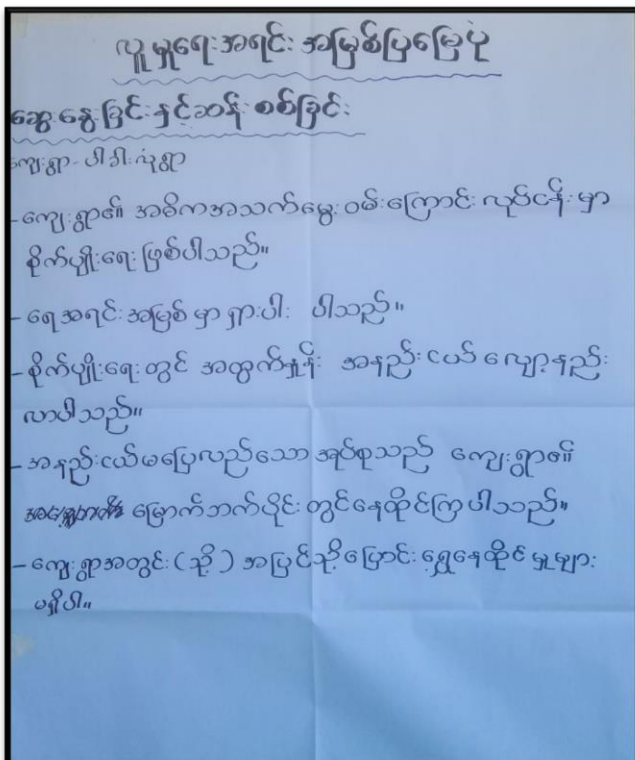 လူမှုရေးအရင်းအမြစ်ပြမြေပုံ
ဆွေးနွေးခြင်းနှင့်ဆန်းစစ်ခြင်း
ကျေးရွာ - ပါဒါးလုံရွာ
- ကျေးရွာ၏ အဓိကအသက်မွေးဝမ်းကြောင်းလုပ်ငန်းမှာ
စိုက်ပျိုးရေးဖြစ်ပါသည်။
- ရေအရင်းအမြစ်မှာရှားပါး ပါသည်။
- စိုက်ပျိုးရေးတွင် အထွက်နှုန်း အနည်းငယ် လျော့နည်း
လာပါသည်။
- အနည်းငယ်မပြေလည်သော အုပ်စုသည် ကျေးရွာ၏
မြောက်ဘက်ပိုင်းတွင်နေထိုင်ကြပါသည်။
- ကျေးရွာအတွင်း (သို့) အပြင်သို့ပြောင်းရွှေ့နေထိုင်မှုများ
မရှိပါ။